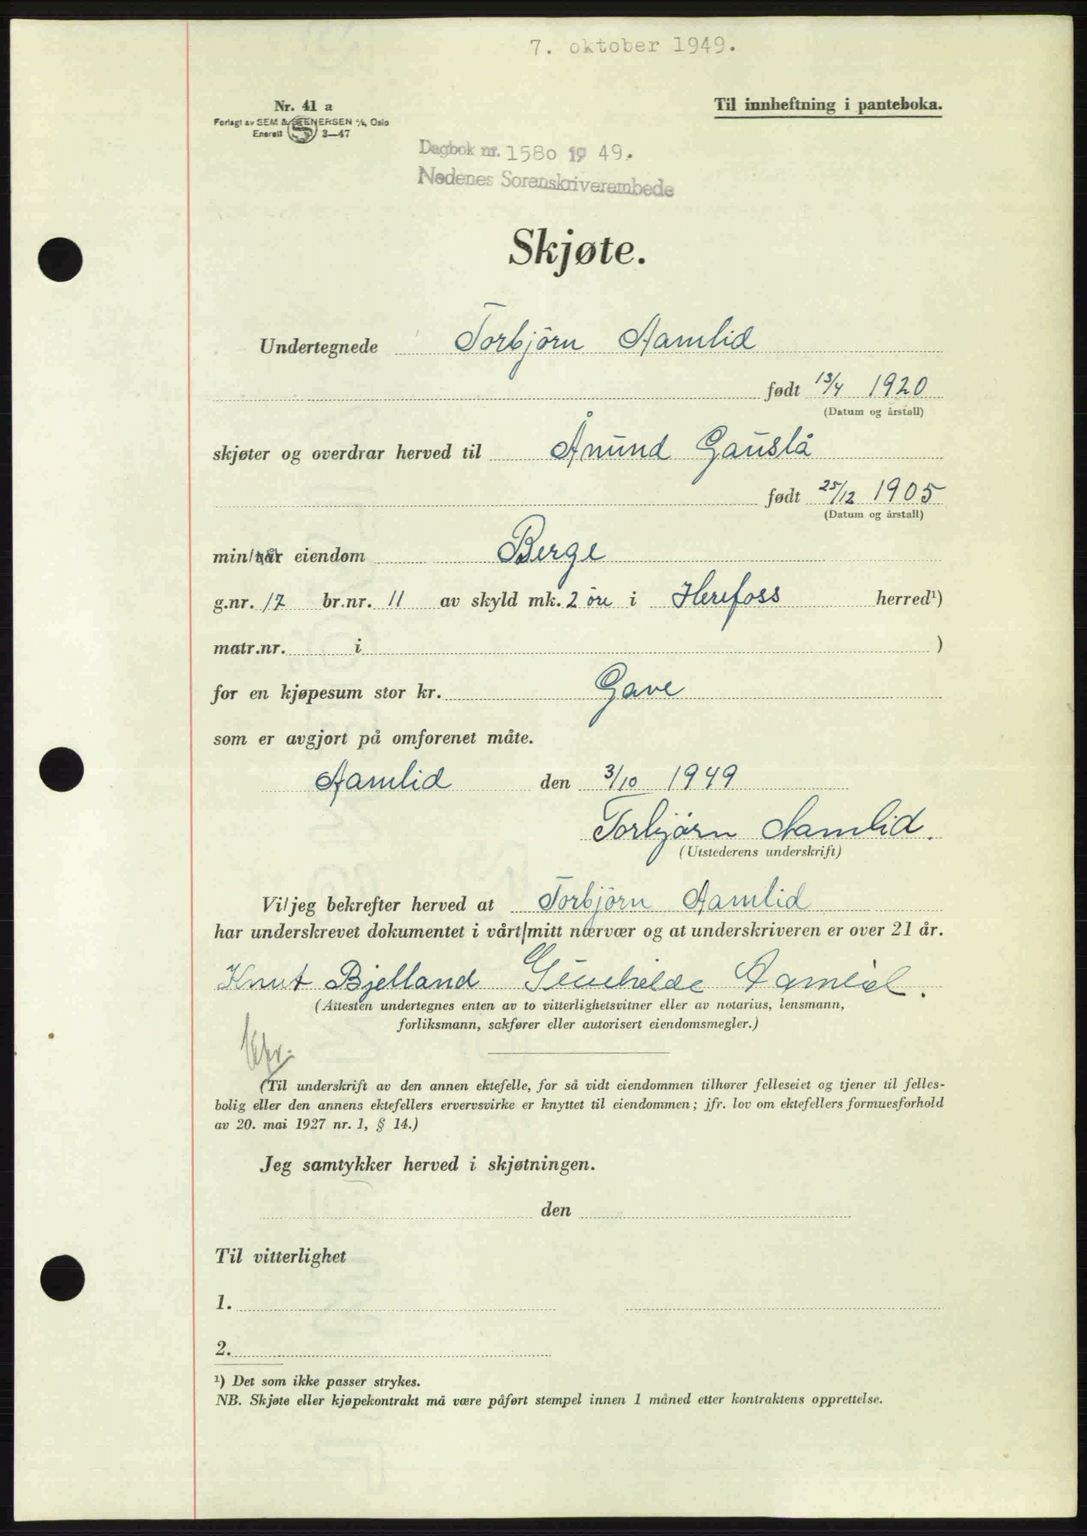 7. oktober 1949.
Nr. 41 a
Til innheftning i panteboka.
Forlagt av SEM & STENERSEN A/s, Oslo
Enerett S 3—47
Dagbok nr. 1580 19 49.
Nedenes Sorenskriverembede
Skjøte.
Undertegnede Torbjörn Aamlid
født 13/4 1920
(Datum og årstall)
skjøter og overdrar herved til Ånund Gauslå
født 25/12 1905
(Datum og årstall)
min/vår eiendom Berge
g.nr. 17 br.nr. 11 av skyld mk. 2 öre i Herefoss herred¹)
matr.nr. i )
for en kjøpesum stor kr. Gave
som er avgjort på omforenet måte.
Aamlid den 3/10 1949
Torbjørn Aamlid.
(Utstederens underskrift)
Vi/jeg bekrefter herved at Torbjörn Aamlid
har underskrevet dokumentet i vårt/mitt nærvær og at underskriveren er over 21 år.
Knut Bjelland Gunhilde Aamlid.
(Attesten undertegnes enten av to vitterlighetsvitner eller av notarius, lensmann,
forliksmann, sakfører eller autorisert eiendomsmegler.)
(Til underskrift av den annen ektefelle, for så vidt eiendommen tilhører felleseiet og tjener til felles-
bolig eller den annens ektefellers ervervsvirke er knyttet til eiendommen; jfr. lov om ektefellers formuesforhold
av 20. mai 1927 nr. 1, § 14.)
Jeg samtykker herved i skjøtningen.
den
Til vitterlighet
1.
2.
¹) Det som ikke passer strykes.
NB. Skjøte eller kjøpekontrakt må være påført stempel innen 1 måned etter kontraktens opprettelse.